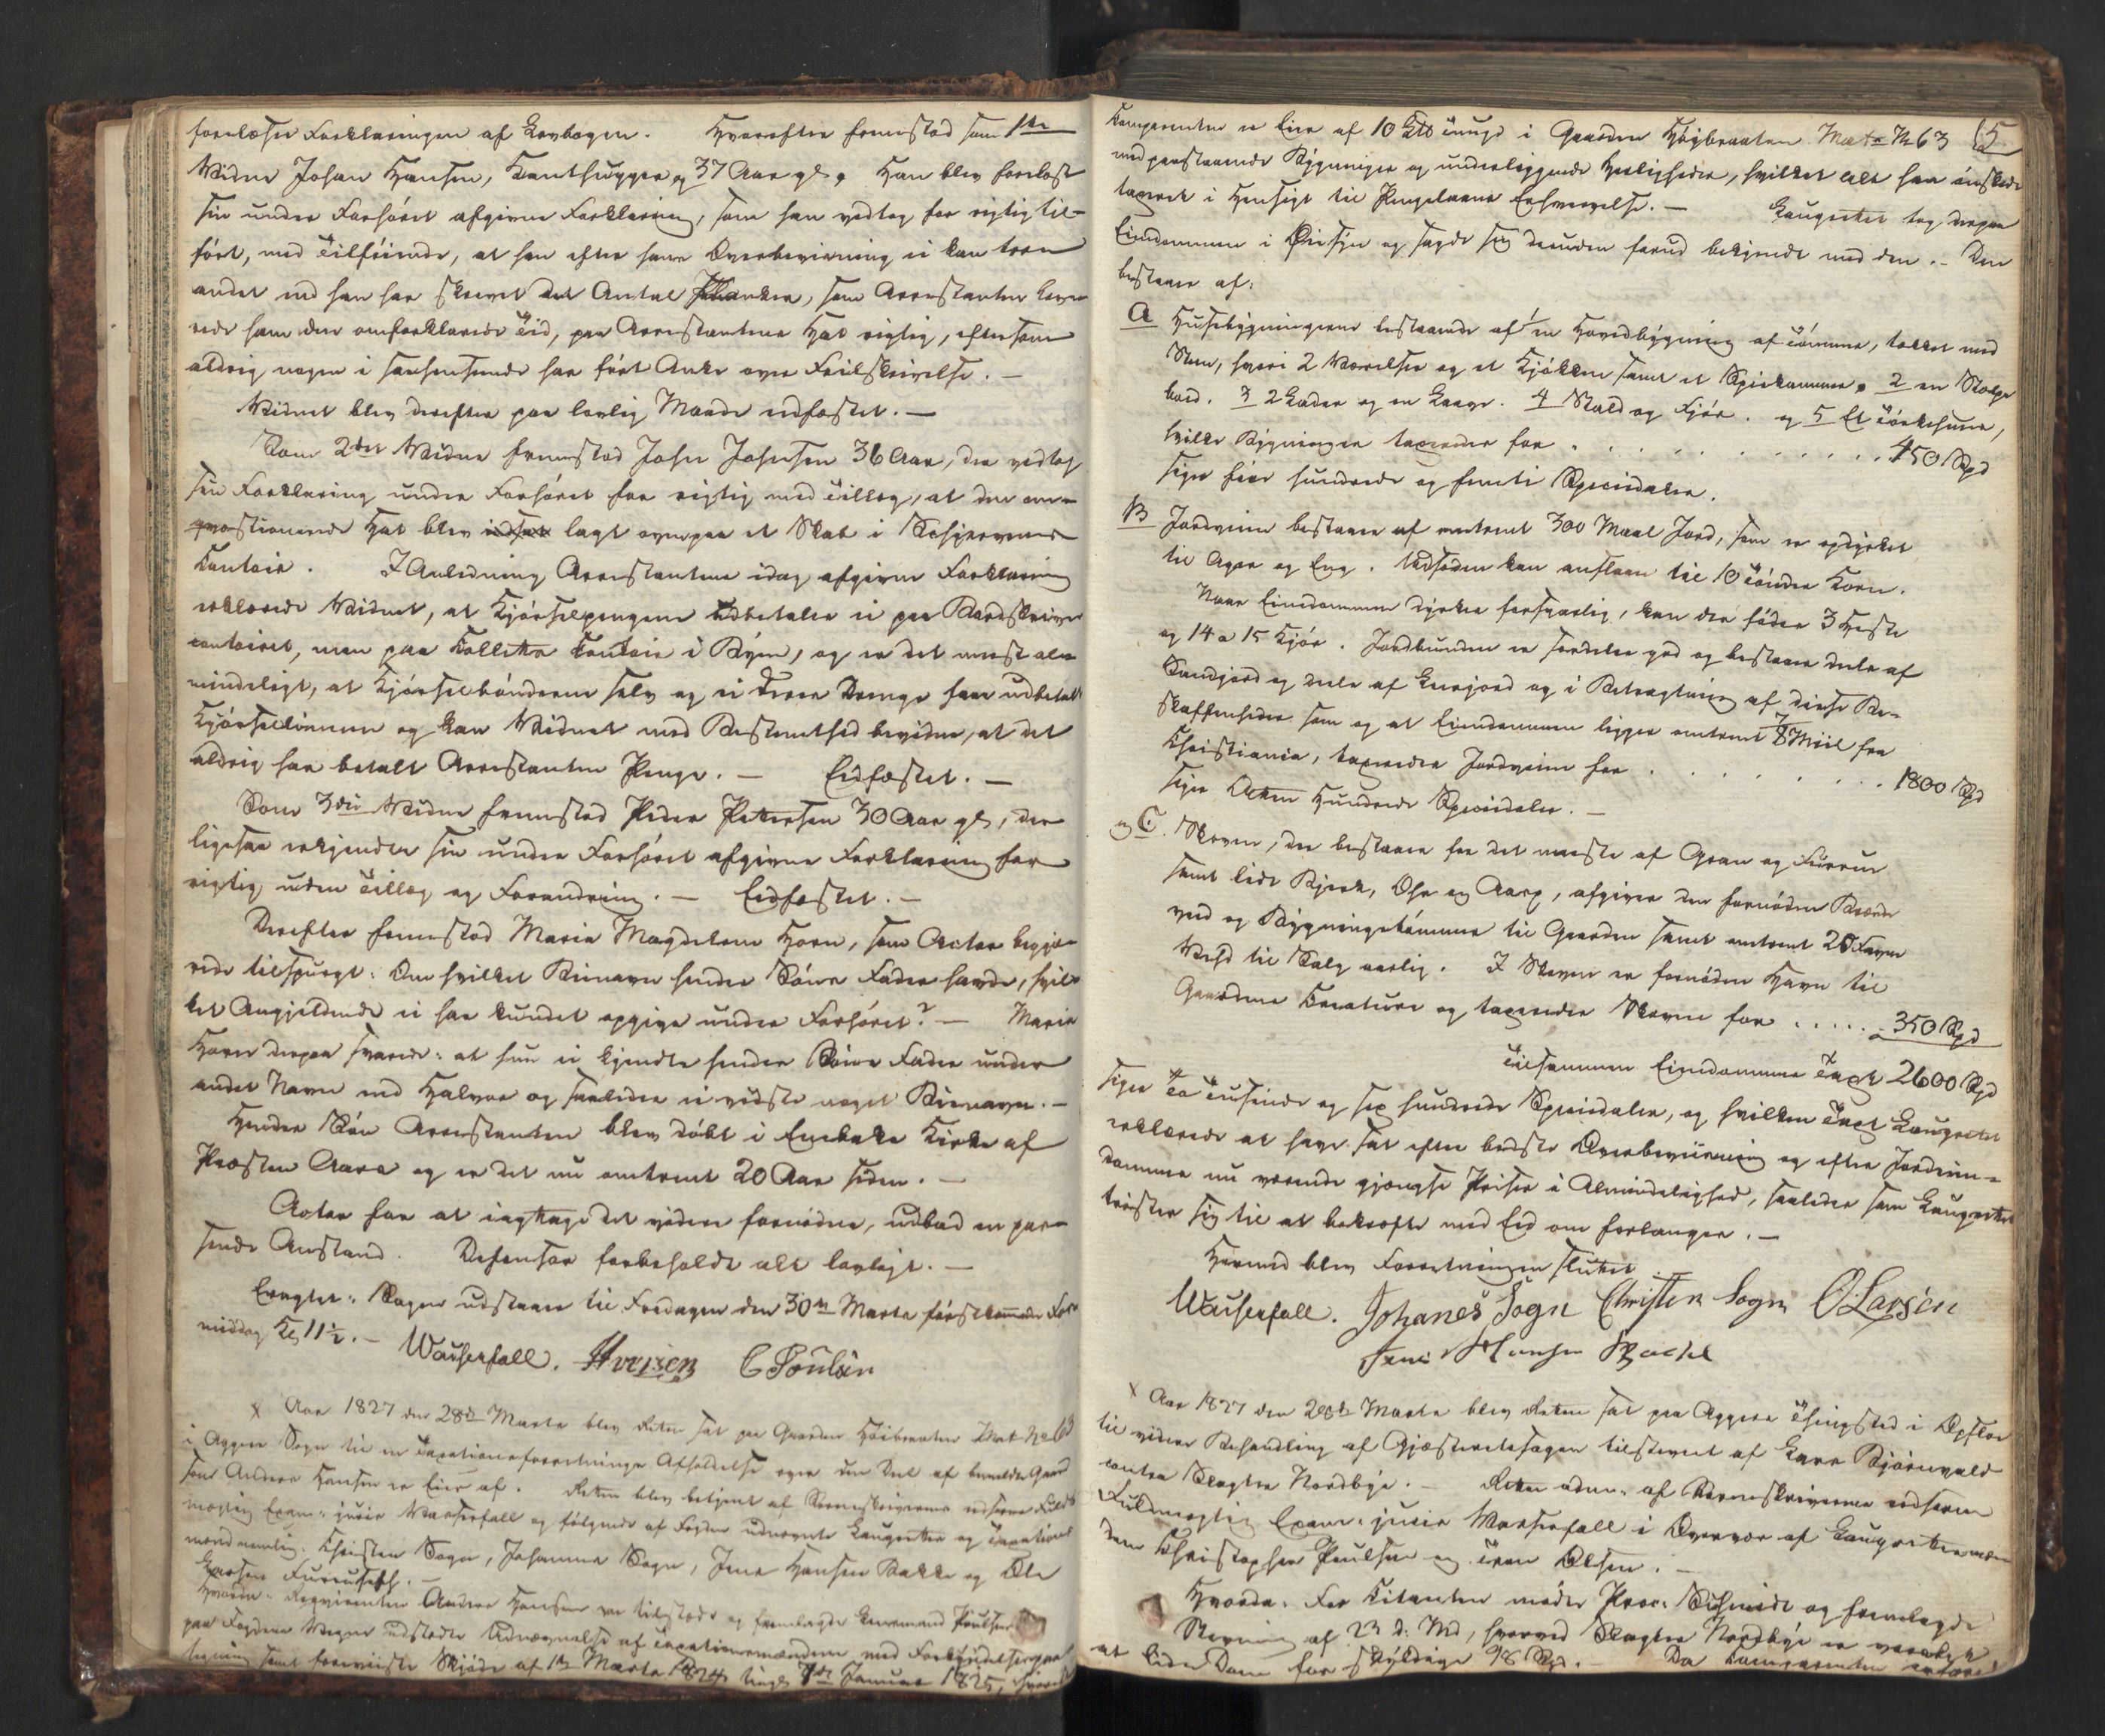 foreløste Forklaringen af Lovbogen. Hvorefter fremstod som 1ste
Vidne Johan Hansen, Kanthugger, 37 Aar gl. Han blev foreløst
sin under Forhøret afgivne Forklaring, som han vedtog for rigtig til-
ført, med Tilføiende, at han efter hans Overbeviisning ei kan troe
andet end han har skrevet det Antal Planker, som Arrestanten leve-
rede ham den omforklarede Tid, paa Arrestantens Hat rigtig, eftersom
aldrig nogen i saahenseende har ført Anke over Feilskrivelse. —
Vidnet blev derefter paa lovlig Maade edfæstet. —
Som 2det Vidne fremstod John Johnsen 36 Aar, der vedtog
sin Forklaring under Forhøret for rigtig med Tillæg, at den om-
qvæstionerede Hat blev lagt ovenpaa et Skab i
Contoir. I Anledning Arrestantens idag afgivne Forklaring
erklærede Vidnet, at Kjørselpengene udbetales ei paa Bordskriver
contoiret, men paa Colletts Contoir i Byen, og er det meest al-
mindeligt, at Kjørselbønderne selv og ei deres Drenge faae udbetalt
Kjørsellønnen og kan Vidnet med Bestemthed bevidne, at det
aldrig har betalt Arrestanten Penge. — Eedfæstet. —
Som 3die Vidne fremstod Peder Pettersen 30 Aar gl, der
ligesaa erkjendte sin under Forhøret afgivne Forklaring for
rigtig uden Tillæg og Forandring. — Eedfæstet. —
Derefter fremstod Maria Magdelena Horn, som Actor begjæ-
rede tilspurgt: Om hvilket Binavn hendes Søns Fader havde, hvil-
ket Angjeldende ei har kundet opgive under Forhøret? — Maria
Horn derpaa svarede: at hun ei kjendte hendes Søns Fader under
andet Navn end Halvor og saaledes ei vidste noget Binavn. —
Hendes Søn Arrestanten blev døbt i Enebaks Kirke af
Præsten Aars og er det nu omtrent 20 Aar siden. —
Actor for at iagttage det videre fornødne, udbad en pas-
sende Anstand. Defensor forbeholdt alt lovligt. —
Eragtet: Sagen udstaaer til Fredagen den 30te Marts førstkommende For-
middag Kl 11½. — Wauserfall. Iversen C Poulsen
x Aar 1827 den 28de Marts blev Retten sat paa Gaarden Høibraaten Mat No 63
i Aggers Sogn til en Taxationsforretnings Afholdelse over den Deel af bemeldte Gaard
som Anders Hansen er Eier af. Retten blev betjent af Sorenskriverens edsvorne Fuld-
mægtig Exam: juris Wauserfall og følgende af Fogden udnævnte Laugrettes og Taxations
mænd nemlig: Christen Sogn, Johannes Sogn, Jens Hansen Bakke og Ole
Larsen Furuseth. —
Hvorda: Requirenten Anders Hansen var tilstæde og fremlagde Lensmand Poulsens
paa Fogdens Vegne udstedte Udnævnelse af Taxationsmændene med Forkyndelsespaa-
tegning samt foreviiste Skjøde af 1ste Marts 1824 tingl 7de Januar 1825,
Comparenten er Eier af 10 Tunge i Gaarden Høybraaten Matr No 63 15
med paastaaende Bygninger og underliggende Herligheder, hvilket alt han ønskede
taxeret i Hensigt til Pengelaans Erhvervelse. — Laugrettet tog derpaa
Eiendommen i Øiesyn og sagde sig desuden forud bekjendt med den. — Den
bestaaer af:
A Husebygningerne bestaaende af 1 en Hovedbygning af Tømmer, takket med
Steen, hvori 2 Værelser og et Kjøkken samt et Spiskammer. 2 en Stolpe
bod. 3 2 Lader og en Laave. 4 Stald og Fjøs. og 5 Et Tørkehuus,
hvilke Bygninger taxeredes for . . . . . . . . . . . 450 Spd
siger fire hundrede og femti Speciedaler.
B Jordveien bestaaer af omtrent 300 Maal Jord, som er opdyrket
til Ager og Eng. Udsæden kan ansslaaes til 10 Tønder Korn.
Naar Eiendommen dyrkes forsvarlig, kan der fødes 3 Heste
og 14 a 15 Kjør. Jordbunden er særdeles god og bestaaer deels af
Sandjord og deels af Leerjord og i Betragtning af disse Be-
skaffenheder som og at Eiendommen ligger omtrent 7/8 Miil fra
Christiania, taxeredes Jordveien for . . . . . . . . . 1800 Spd
siger Atten Hundrede Speciedaler. —
og C. Skoven, der bestaaer for det meeste af Gran og Furrue
samt lidt Bjerk, Ohr og Aasp, afgiver den fornødne Brænde
veed og Bygningstømmer til Gaarden samt omtrent 20 Favne
Vehd til Salg aarlig. I Skoven er fornøden Havn til
Gaardens Creature og taxeredes Skoven for . . . . . 350 Spd
Tilsammen Eiendommens Taxt 2600 Spd
siger To Tusinde og sex hundrede Speciedaler, og hvilken Taxt Laugrettet
erklærede at have sat efter bedste Overbeviisning og efter Jordeien-
dommes nu værende gjængse Priser i Almindelighed, saaledes som Laugrettet
trøster sig til at bekræfte med Eed om forlanges. —
Hermed blev Forretningen sluttet.
Wauserfall. Johanes Sogn Christen Sogn O Larsen
Jens Hansen Backe
x Aar 1827 den 28de Marts blev Retten sat paa Aggers Thingsted i Opsloe
til videre Behandling af Gjæsteretssagen tilstevnt af Lars Bjørnvald
contra Slagter Nordbye. — Retten adm: af Sorenskriverens edsvorne
Fuldmægtig Exam: juris Wauserfall i Overvær af Laugrettesmæn-
dene Christopher Poulsen og Iver Olsen. —
Hvorda: For Citanten møder Proc: Schmidt og fremlagde
Stevning af 23 d: Md, hvorved Slagter Nordbye er
at lide Dom for skyldige 98 Spd. — Da Comparenten